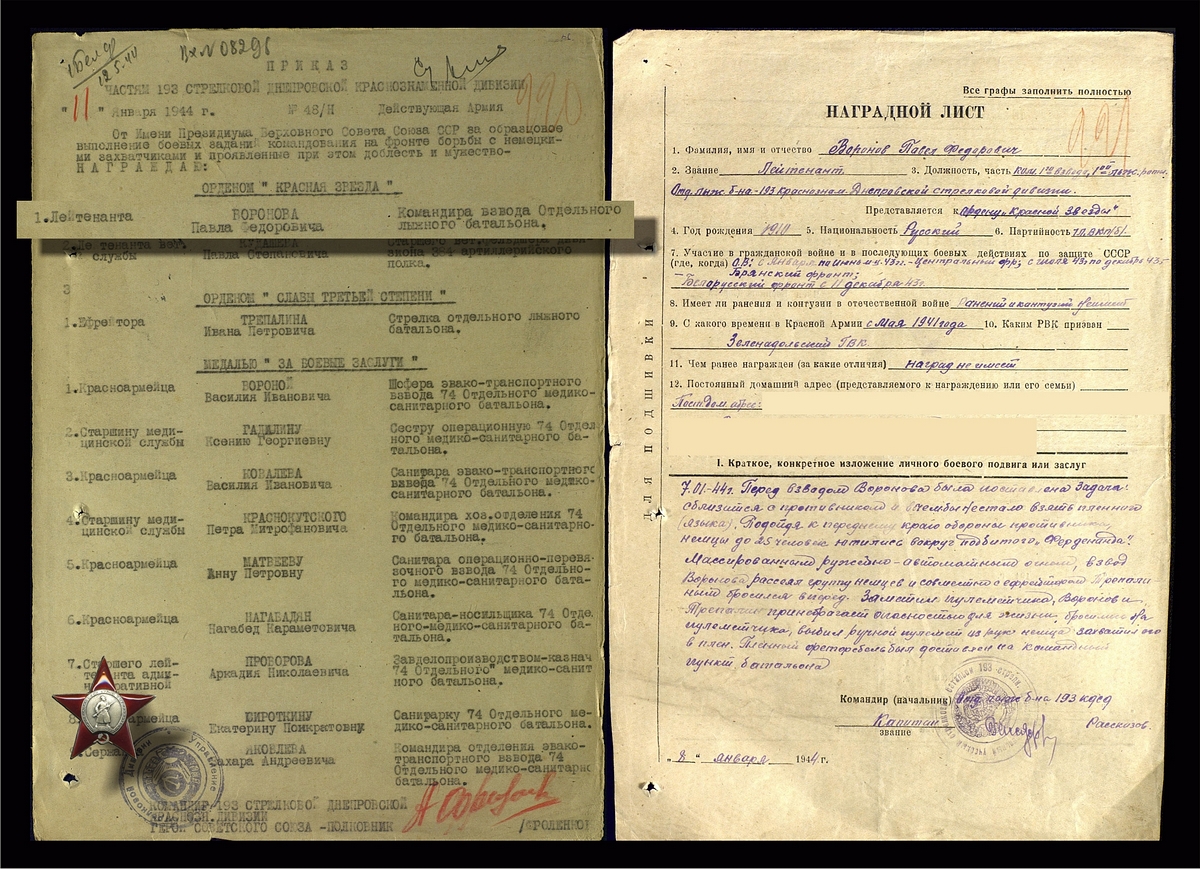 Вх№ 08296
12.5.44
220
ПРИКАЗ
ЧАСТЯМ 193 СТРЕЛКОВОЙ ДНЕПРОВСКОЙ КРАСНОЗНАМЕННОЙ ДИВИЗИИ
" 11 " Января 1944 г. № 46/Н Действующая Армия
От Имени Президиума Верховного Совета Союза ССР за образцовое
выполнение боевых заданий командования на фронте борьбы с немецки-
ми захватчиками и проявленные при этом доблесть и мужество-
НАГРАЖДАЮ:
ОРДЕНОМ " КРАСНАЯ ЗВЕЗДА "
1.Лейтенанта ВОРОНОВА Командира взвода Отдельного
Павла Федоровича лыжного батальона.
службы Павла Степановича
полка.
3 ОРДЕНОМ " СЛАВЫ ТРЕТЬЕЙ СТЕПЕНИ "
1.Ефрейтора ТРЕПАЛИНА Стрелка отдельного лыжного
Ивана Петровича батальона.
МЕДАЛЬЮ " ЗА БОЕВЫЕ ЗАСЛУГИ "
1.Красноармейца ВОРОНОЙ Шофера эвако-транспортного
Василия Ивановича взвода 74 Отдельного медико-
санитарного батальона.
2.Старшину меди- ГАДИЛИНУ Сестру операционную 74 Отдель
цинской службы Ксению Георгиевну ного медико-санитарного ба-
тальона.
3.Красноармейца КОВАЛЕВА Санитара эвако-транспортного
Василия Ивановича взвода 74 Отдельного медико-
санитарного батальона.
4.Старшину меди- КРАСНОКУТСКОГО Командира хоз.отделения 74
цинской службы Петра Митрофановича Отдельного медико-санитарно-
го батальона.
5.Красноармейца МАТВЕЕВУ Санитара операционно-перевя-
Анну Петровну зочного взвода 74 Отдельно-
го медико-санитарного бата-
льона.
6.Красноармейца НАГАБАДЯН Санитара-носильщика 74 Отде
Нагабед Караметовича ного-медико-санитарного ба-
тальона.
7.Старшего лей- ПРОВОРОВА Завделопроизводством-казнач
тенанта адми- Аркадия Николаевича 74 Отдельного медико-санит
ративной ного батальона.
8. армейца ШИРОТКИНУ Санитарку 74 Отдельного ме-
Екатерину Понкратовну дико-санитарного батальона.
ЯКОВЛЕВА Командира отделения эвако-
Захара Андреевича транспортного взвода 74
Отдельного медико-санитарно
батальона.
КОМАНДИР 193 СТРЕЛКОВОЙ ДНЕПРОВСКОЙ
КРАСНОЗН.ДИВИЗИИ
ГЕРОЙ СОВЕТСКОГО СОЮЗА -ПОЛКОВНИК /ФРОЛЕНКО
ДЛЯ ПОДШИВКИ
Все графы заполнить полностью
НАГРАДНОЙ ЛИСТ
221
1. Фамилия, имя и отчество Воронов Павел Федорович
2. Звание Лейтенант 3. Должность, часть ком. 1го взвода, 1ой лыж. роты
Отд. лыж б-на-193 краснознам Днепровской стрелковой дивизии.
Представляется к ордену „Красной звезды"
4. Год рождения 1910 5. Национальность Русский 6. Партийность чл. ВКП/б/.
7. Участие в гражданской войне и в последующих боевых действиях по защите СССР
(где, когда) О.В: с Января по Июнь м-ц 43г.-Центральный фр; с июля 43г по декабрь 43г
-Брянский фронт;
-Белорусский фронт с 11 декабря 43г.
8. Имеет ли ранения и контузии в отечественной войне Ранений и контузий не имеет
9. С какого времени в Красной Армии с Мая 1941 года 10. Каким РВК призван
Зеленадольский ГВК.
11. Чем ранее награжден (за какие отличия) наград не имеет
12. Постоянный домашний адрес (представляемого к награждению или его семьи)
Пост. дом. адрес:
I. Краткое, конкретное изложение личного боевого подвига или заслуг
7.01.-44г. Перед взводом Воронова была поставлена Задача:
сблизится с противником и во чтобы не стало взять пленного
(языка). Подойдя к переднему краю обороны противника,
немцы до 25 человек ютились вокруг подбитого „Фердинанда".
Массированным ружейно-автоматным огнем, взвод
Воронова рассеял группу немцев и совместно с ефрейтором Трепали
ным бросился вперед. Заметив пулеметчика, Воронов и
Трепалин принебрегая опасностью для жизни, бросились на
пулеметчика, выбил ручной пулемет из рук немца захватил его
в плен. Пленный фретор был доставлен на командный
пункт батальона
Командир (начальник) Отд лыж б-на 193 кдсд
Капитан Рассказов.
звание
„ 8 " января 1944 г.